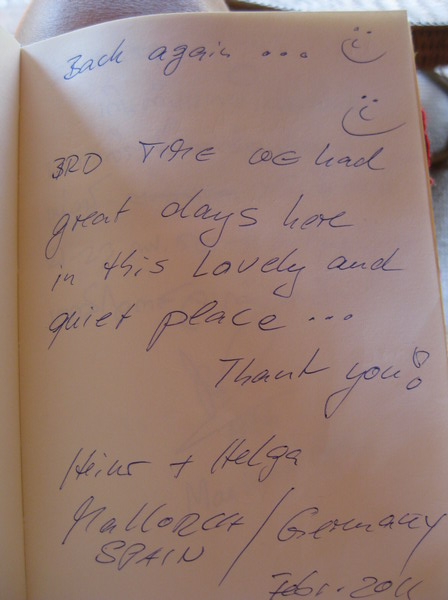 Back again ...
3RD TIME WE had
great days here
in this Lovely and
quiet place ...
Thank you!
Heinz + Helga
MALLORCA / Germany
SPAIN
Febr. 2011